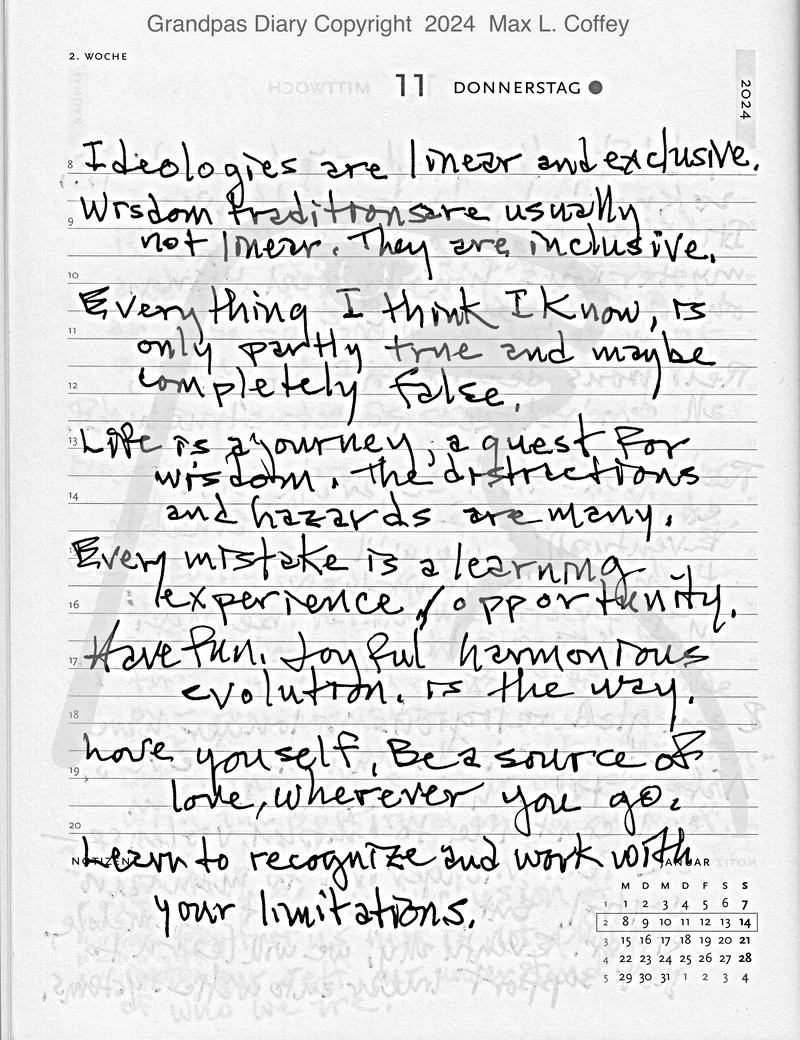 Grandpas Diary Copyright 2024 Max L. Coffey
2. WOCHE
11 DONNERSTAG
2024
8 Ideologies are linear and exclusive.
9 Wisdom traditions are usually
not linear. They are inclusive.
10
Everything I think I Know, is
11
only partly true and maybe
12 completely false.
13 Life is a journey, a quest for
wisdom. The districtions
14
and hazards are many.
Every mistake is a learning
16 experience / opportunity.
17 Have fun. Joyful harmonious
evolution. is the way.
18
Love youself, Be a source of
19
love, wherever you go.
20
Learn to recognize and work with
NOTIZEN
JANUAR
your limitations.
M D M D F S S
1 1 2 3 4 5 6 7
2 8 9 10 11 12 13 14
3 15 16 17 18 19 20 21
4 22 23 24 25 26 27 28
5 29 30 31 1 2 3 4